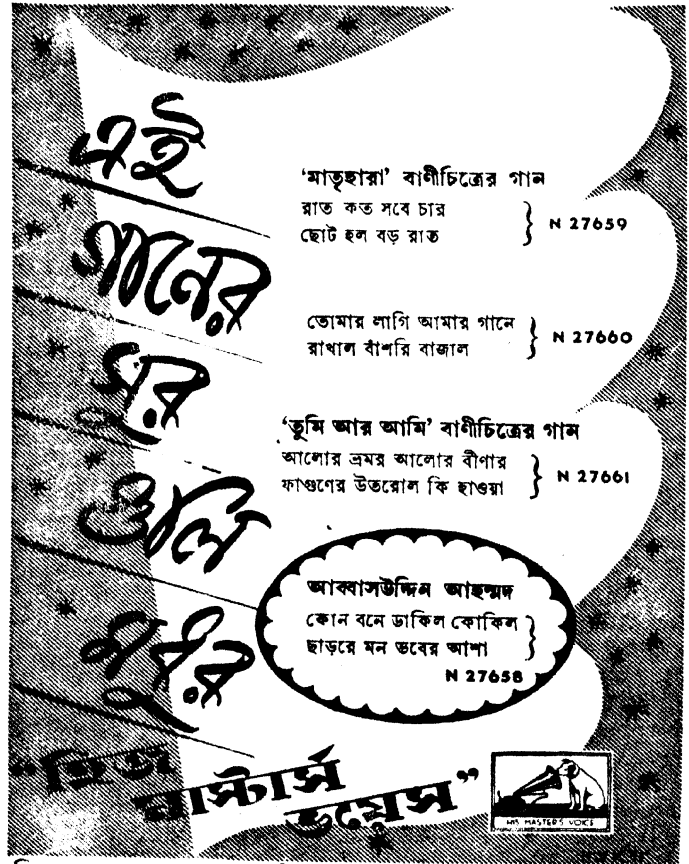 এই
গানের
সুর
গুলি
মধুর
‘মাতৃহারা’ বাণীচিত্রের গান
রাত কত সবে চার
ছোট হল বড় রাত
N 27659
তোমার লাগি আমার গানে
রাখাল বাঁশরি বাজাল
N 27660
‘তুমি আর আমি’ বাণীচিত্রের গান
আলোর ভ্রমর আলোর বীণার
ফাগুণের উতরোল কি হাওয়া
N 27661
আব্বাসউদ্দিন আহম্মদ
কোন বনে ডাকিল কোকিল
ছাড়রে মন ভবের আশা
N 27658
“হিজ
মাস্টার্স
ভয়েস”
HIS MASTER'S VOICE